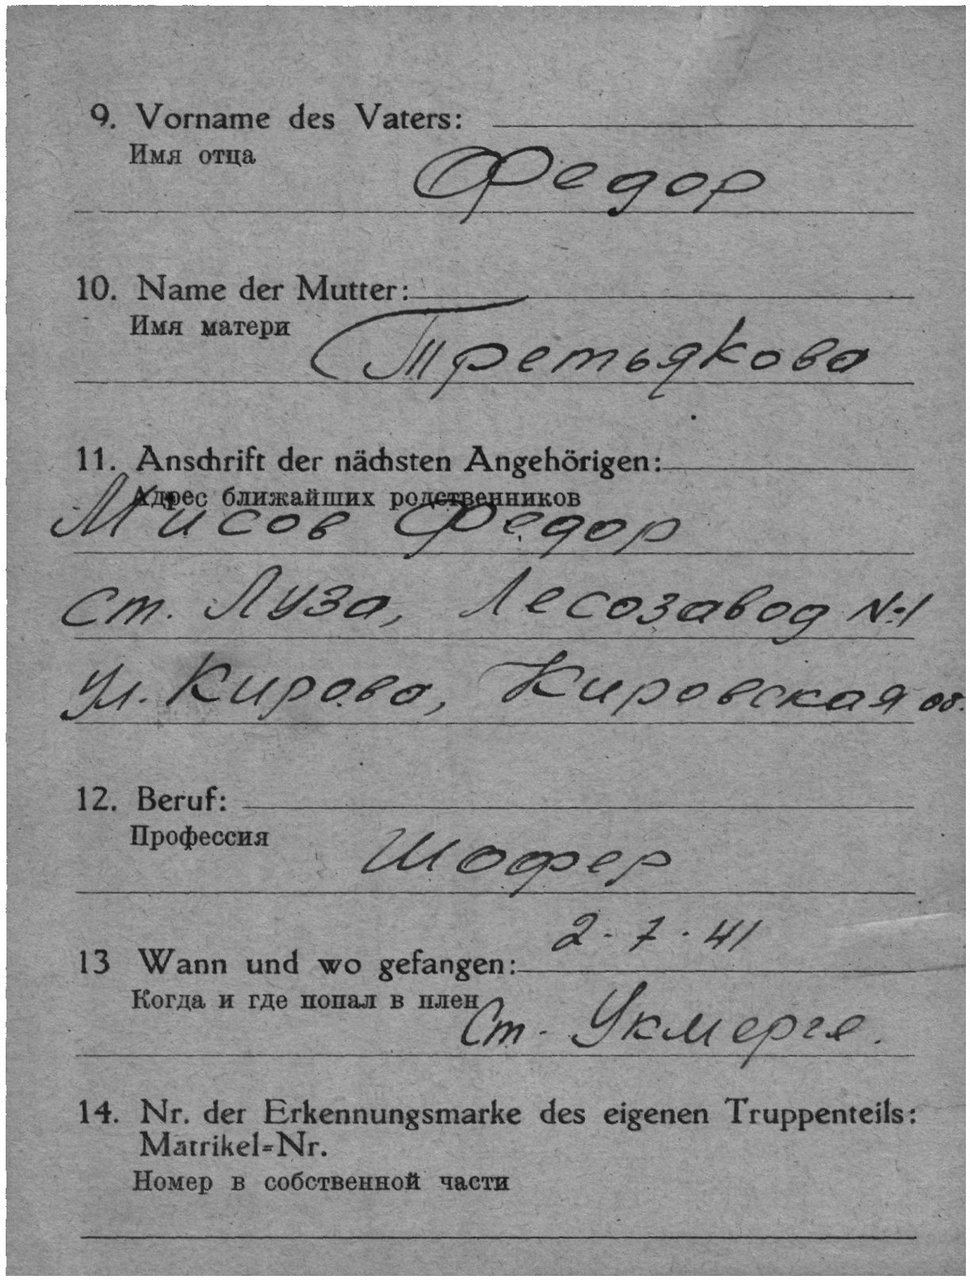 9. Vorname des Vaters:
Имя отца
Федор
10. Name der Mutter:
Имя матери
Третьякова
11. Anschrift der nächsten Angehörigen:
Адрес ближайших родственников
Мисов Федор
ст. Луза, Лесозавод №1
ул. Кирова, Кировская об.
12. Beruf:
Профессия
Шофер
2-7.41
13 Wann und wo gefangen:
Когда и где попал в плен
Ст. Укмерге.
14. Nr. der Erkennungsmarke des eigenen Truppenteils:
Matrikel=Nr.
Номер в собственной части